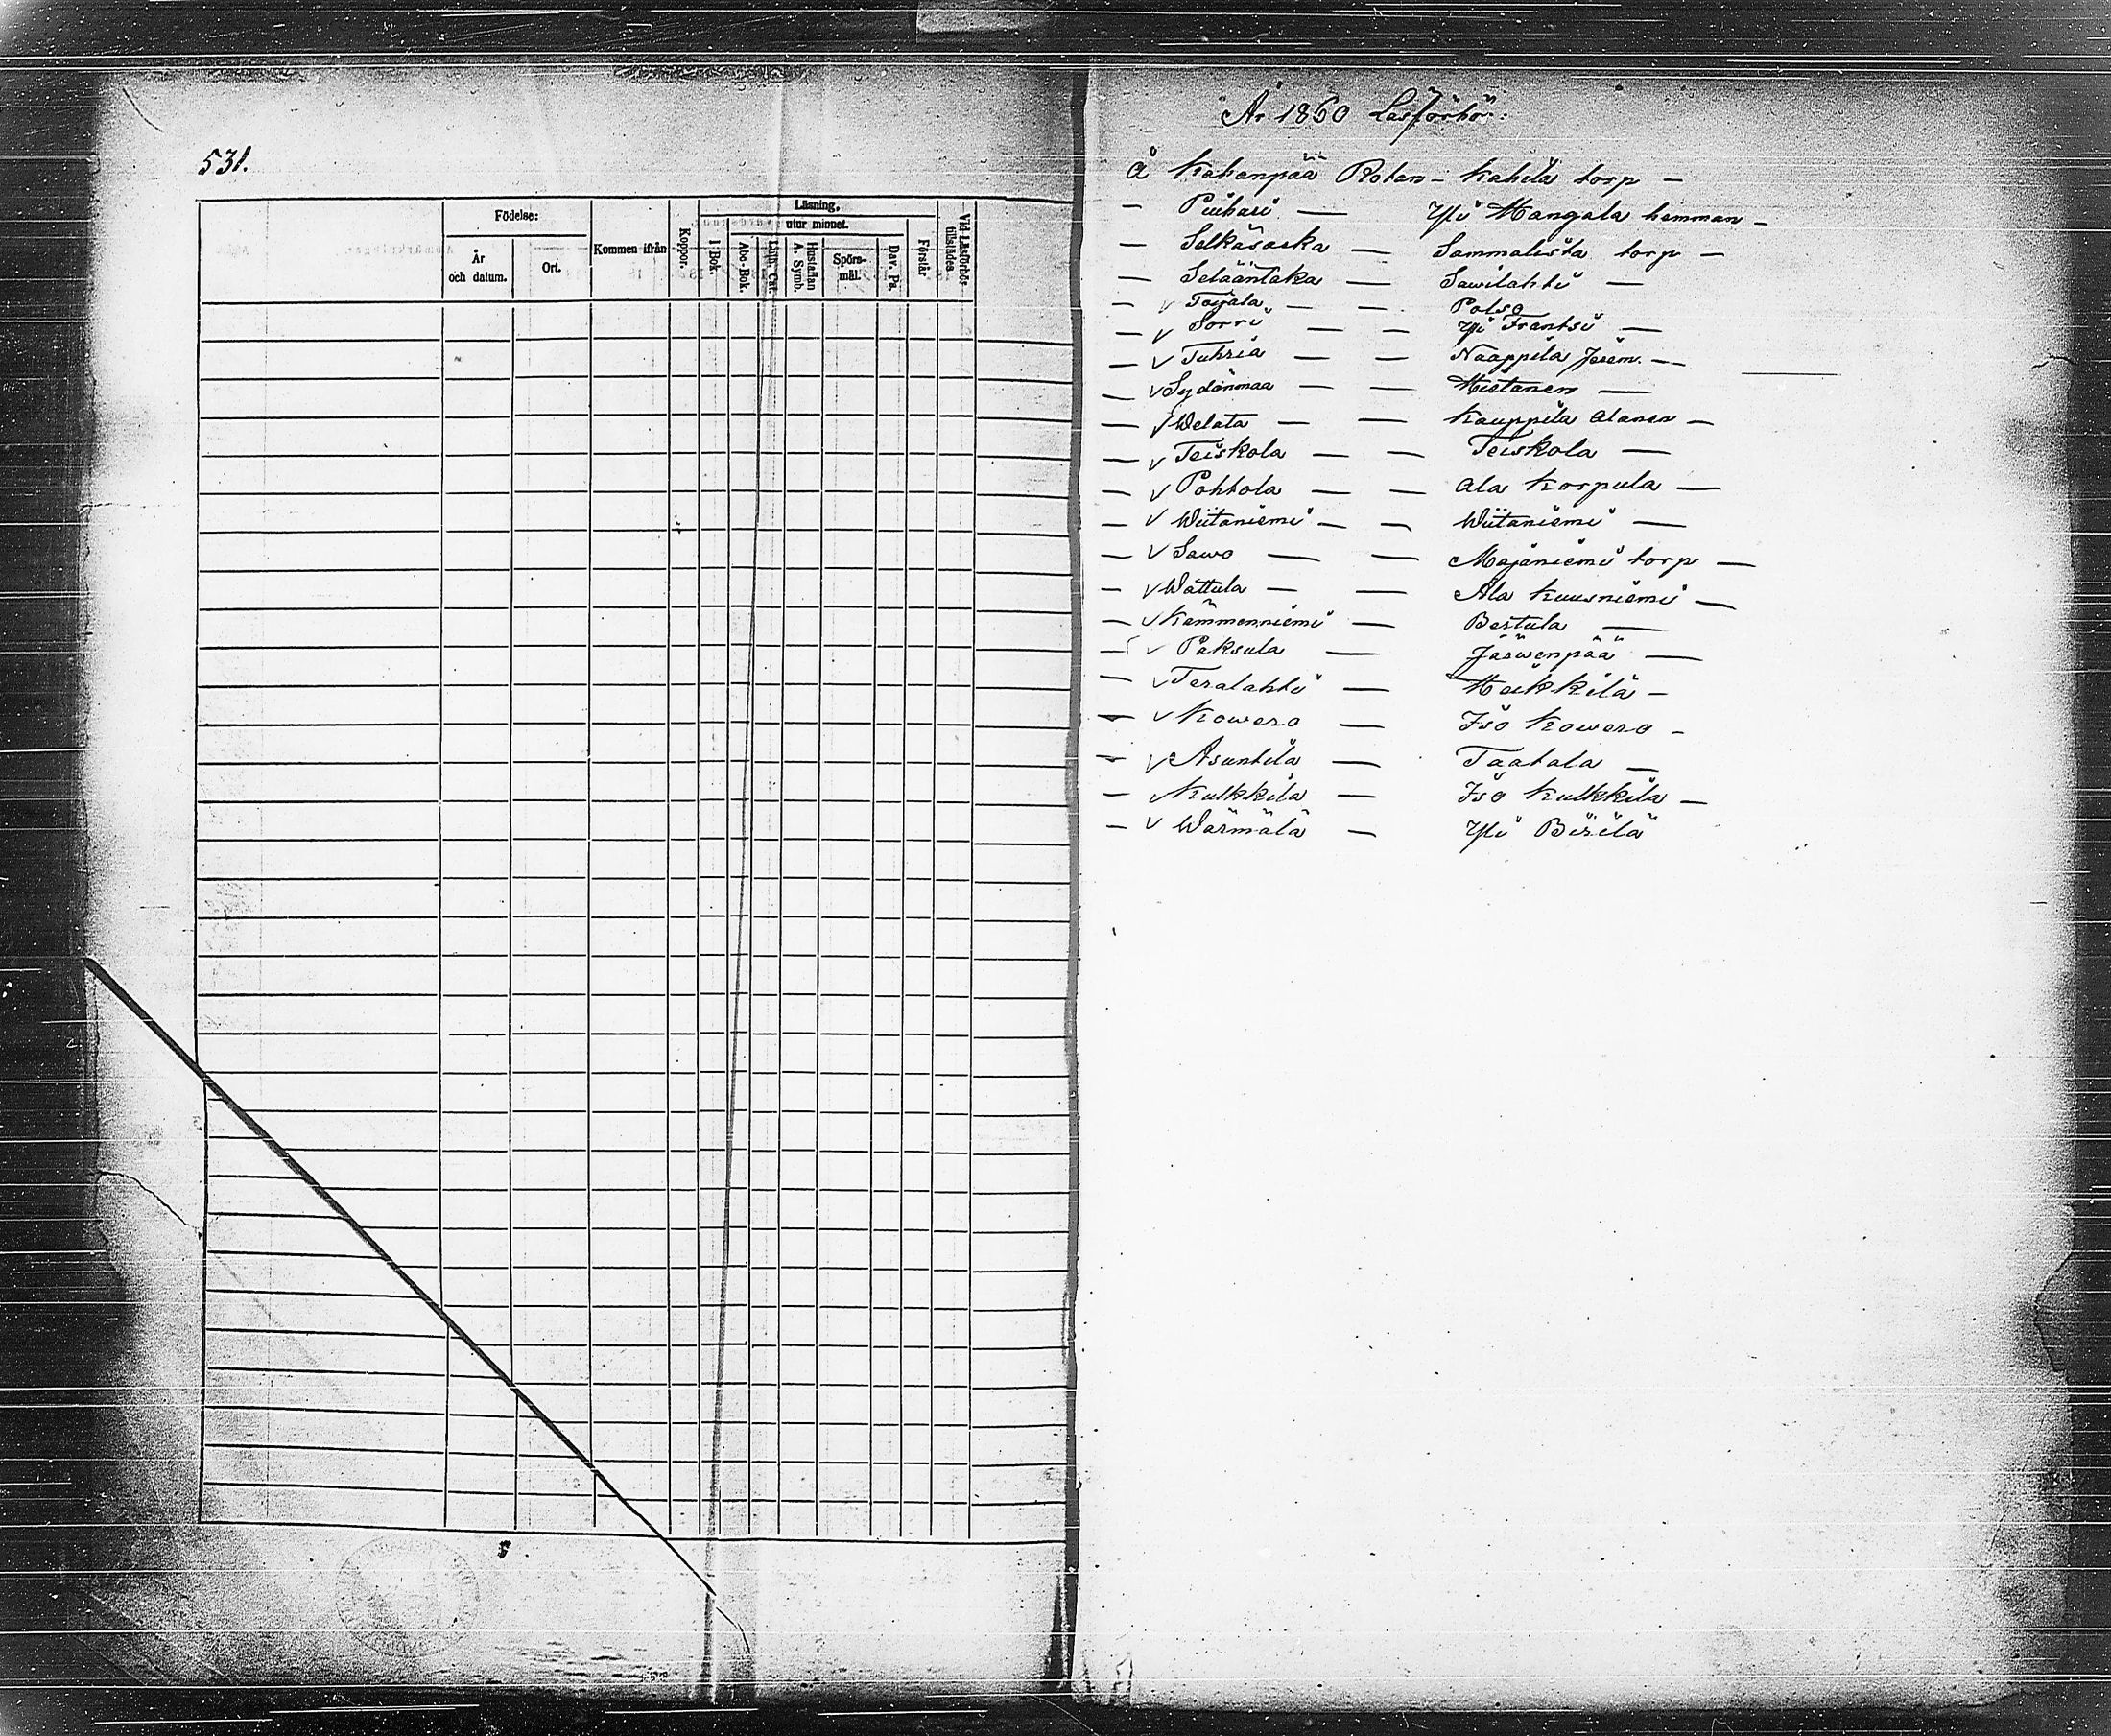 531.
Födelse:
År
och datum.
Ort.
Kommen ifrån
Koppor.
Läsning,
utur minnet.
I Bok.
Abc-Bok.
Luth. Cat.
Hustaflan
A. Symb.
Spörs-
mål.
Dav. Ps.
Förstår
Vid Läsförhör
tillstädes.
År 1860 Läsförhör:
å Kahanpää Roten - Kahila torp —
— Puihari — Yli Mangala hemman —
— Selkäsaska — Sammalista torp —
— Selääntaka — Sawilahti —
— v Toijala — — Potso
— v Sorri — — Yli Frantsi —
— v Tuhria — — Naappila Jerem. —
— v Sydänmaa — — Mistanen —
— v Welata — — Kauppila Alanen —
— v Teiskola — — Teiskola —
— v Pohtola — — Ala Korpula —
— v Wiitaniemi — — Wiitaniemi —
— v Sawo — — Majaniemi torp —
— v Wattula — — Ala Kuusniemi —
— v Kämmenniemi — Bertula —
— v Paksula — Järwenpää —
— v Teralahti — Meikkilä —
— v Kowero — Iso Kowero —
— v Asuntila — Taatala —
— Kulkkila — Iso Kulkkila —
— v Wärmälä — Yli Birilä